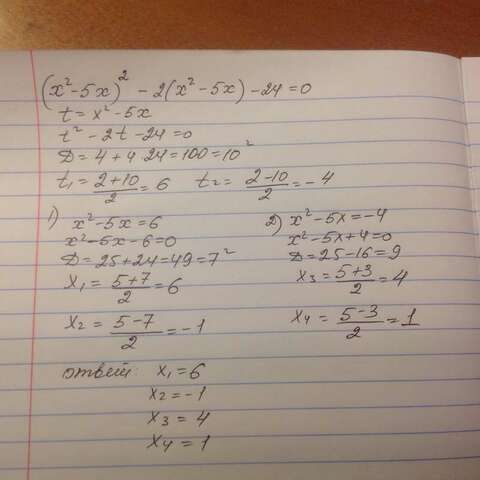 (x²-5x)² - 2(x²-5x) - 24 = 0
t = x² - 5x
t² - 2t - 24 = 0
D = 4 + 4·24 = 100 = 10²
t₁ = (2+10)/2 = 6 t₂ = (2-10)/2 = -4
1) x² - 5x = 6
x² - 5x - 6 = 0
D = 25 + 24 = 49 = 7²
x₁ = (5+7)/2 = 6
x₂ = (5-7)/2 = -1
2) x² - 5x = -4
x² - 5x + 4 = 0
D = 25 - 16 = 9
x₃ = (5+3)/2 = 4
x₄ = (5-3)/2 = 1
ответ: x₁ = 6
x₂ = -1
x₃ = 4
x₄ = 1